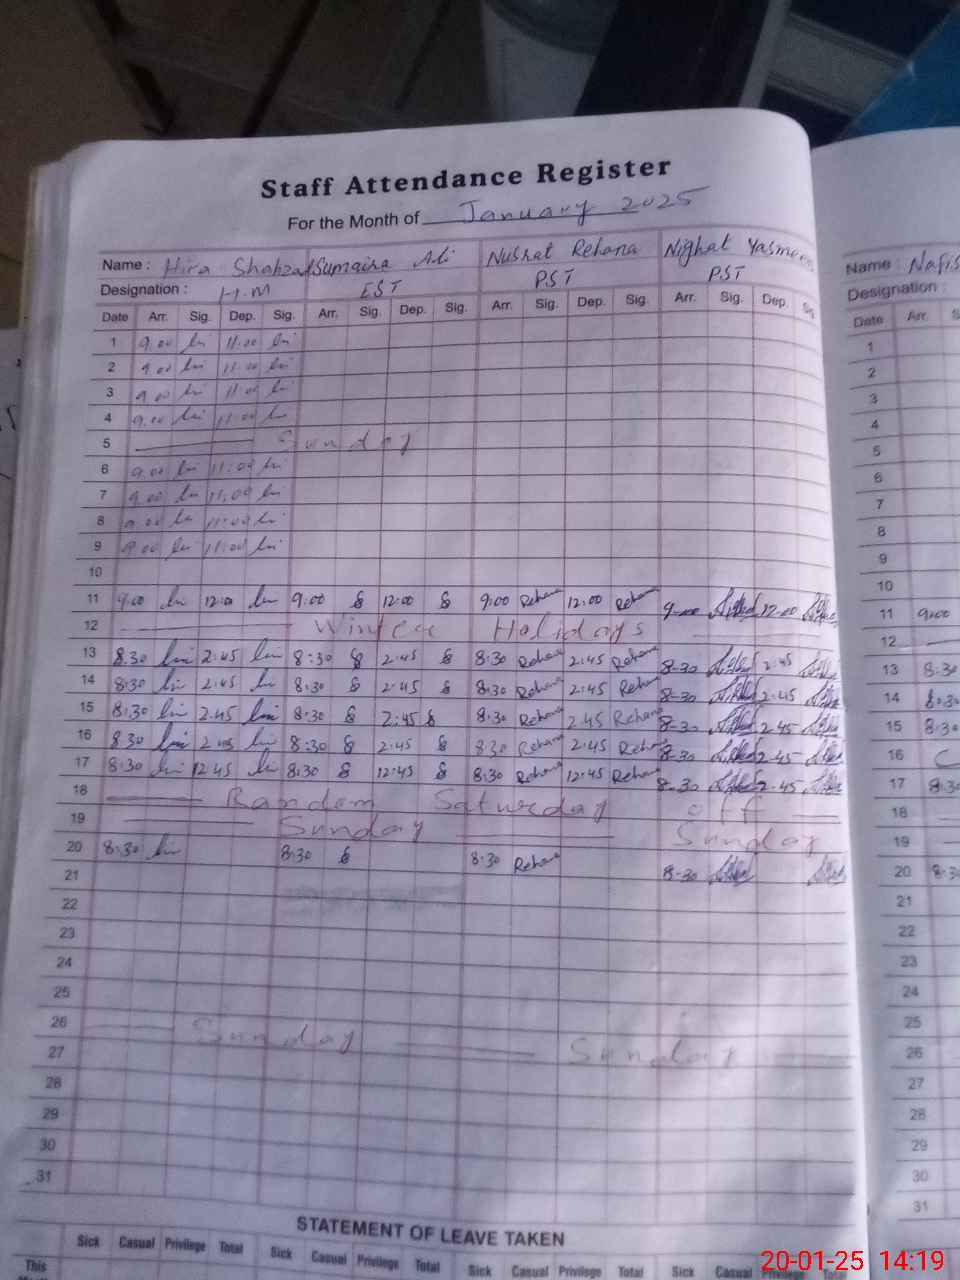 Staff Attendance Register
For the Month of January 2025
Name : Hira Shahzad Sumaira Ali Nusrat Rehana Nighat Yasmeen Name : Nafis
Designation : H.M EST PST PST Designation :
Date Arr. Sig. Dep. Sig. Arr. Sig. Dep. Sig. Arr. Sig. Dep. Sig. Arr. Sig. Dep. Date Arr.
1 9.00 11.00 1
2 9.00 11.00 2
3 9.00 11.00 3
4 9.00 11.00 4
5 Sunday 5
6 9.00 11:00 6
7 9.00 11:00 7
8 9.00 11:00 8
9 9.00 11:00 9
10 10
11 9:00 12:00 9:00 12:00 9:00 Rehana 12:00 Rehana 9-00 12-00 11 9:00
12 Winter Holidays 12
13 8.30 2.45 8:30 2.45 8:30 Rehana 2:45 Rehana 8-30 2.45 13 8:30
14 8:30 2.45 8:30 2.45 8:30 Rehana 2:45 Rehana 8-30 2.45 14 8:30
15 8:30 2.45 8:30 2:45 8:30 Rehana 2.45 Rehana 8-30 2.45 15 8:30
16 8.30 2.45 8:30 2:45 8:30 Rehana 2:45 Rehana 8-30 2.45 16
17 8:30 12.45 8:30 12:45 8:30 Rehana 12:45 Rehana 8-30 2.45 17 8:30
18 Random Saturday off 18
19 Sunday Sunday 19
20 8:30 8:30 8:30 Rehana 8-30 20 8:30
21 21
22 22
23 23
24 24
25 25
26 Sunday Sunday 26
27 27
28 28
29 29
30 30
31 31
STATEMENT OF LEAVE TAKEN
Sick Casual Privilege Total Sick Casual Privilege Total Sick Casual Privilege Total Sick Casual Privilege Total
This
20-01-25 14:19